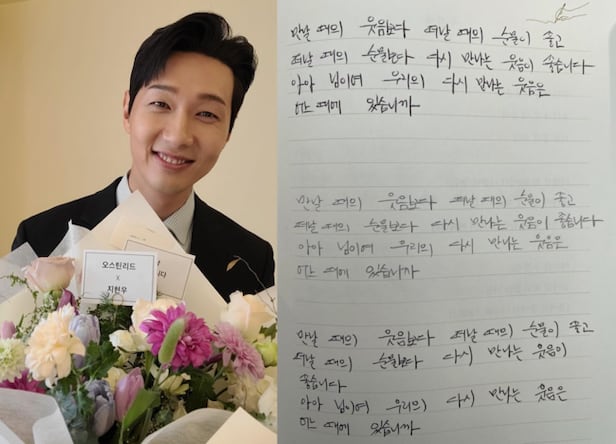 오스틴리드
X
지현우
니다
만날 때의 웃음보다 떠날 때의 눈물이 좋고
떠날 때의 눈물보다 다시 만나는 웃음이 좋습니다
아아 님이여 우리의 다시 만나는 웃음은
어느 때에 있습니까
만날 때의 웃음보다 떠날 때의 눈물이 좋고
떠날 때의 눈물보다 다시 만나는 웃음이 좋습니다
아아 님이여 우리의 다시 만나는 웃음은
어느 때에 있습니까
만날 때의 웃음보다 떠날 때의 눈물이 좋고
떠날 때의 눈물보다 다시 만나는 웃음이
좋습니다
아아 님이여 우리의 다시 만나는 웃음은
어느 때에 있습니까